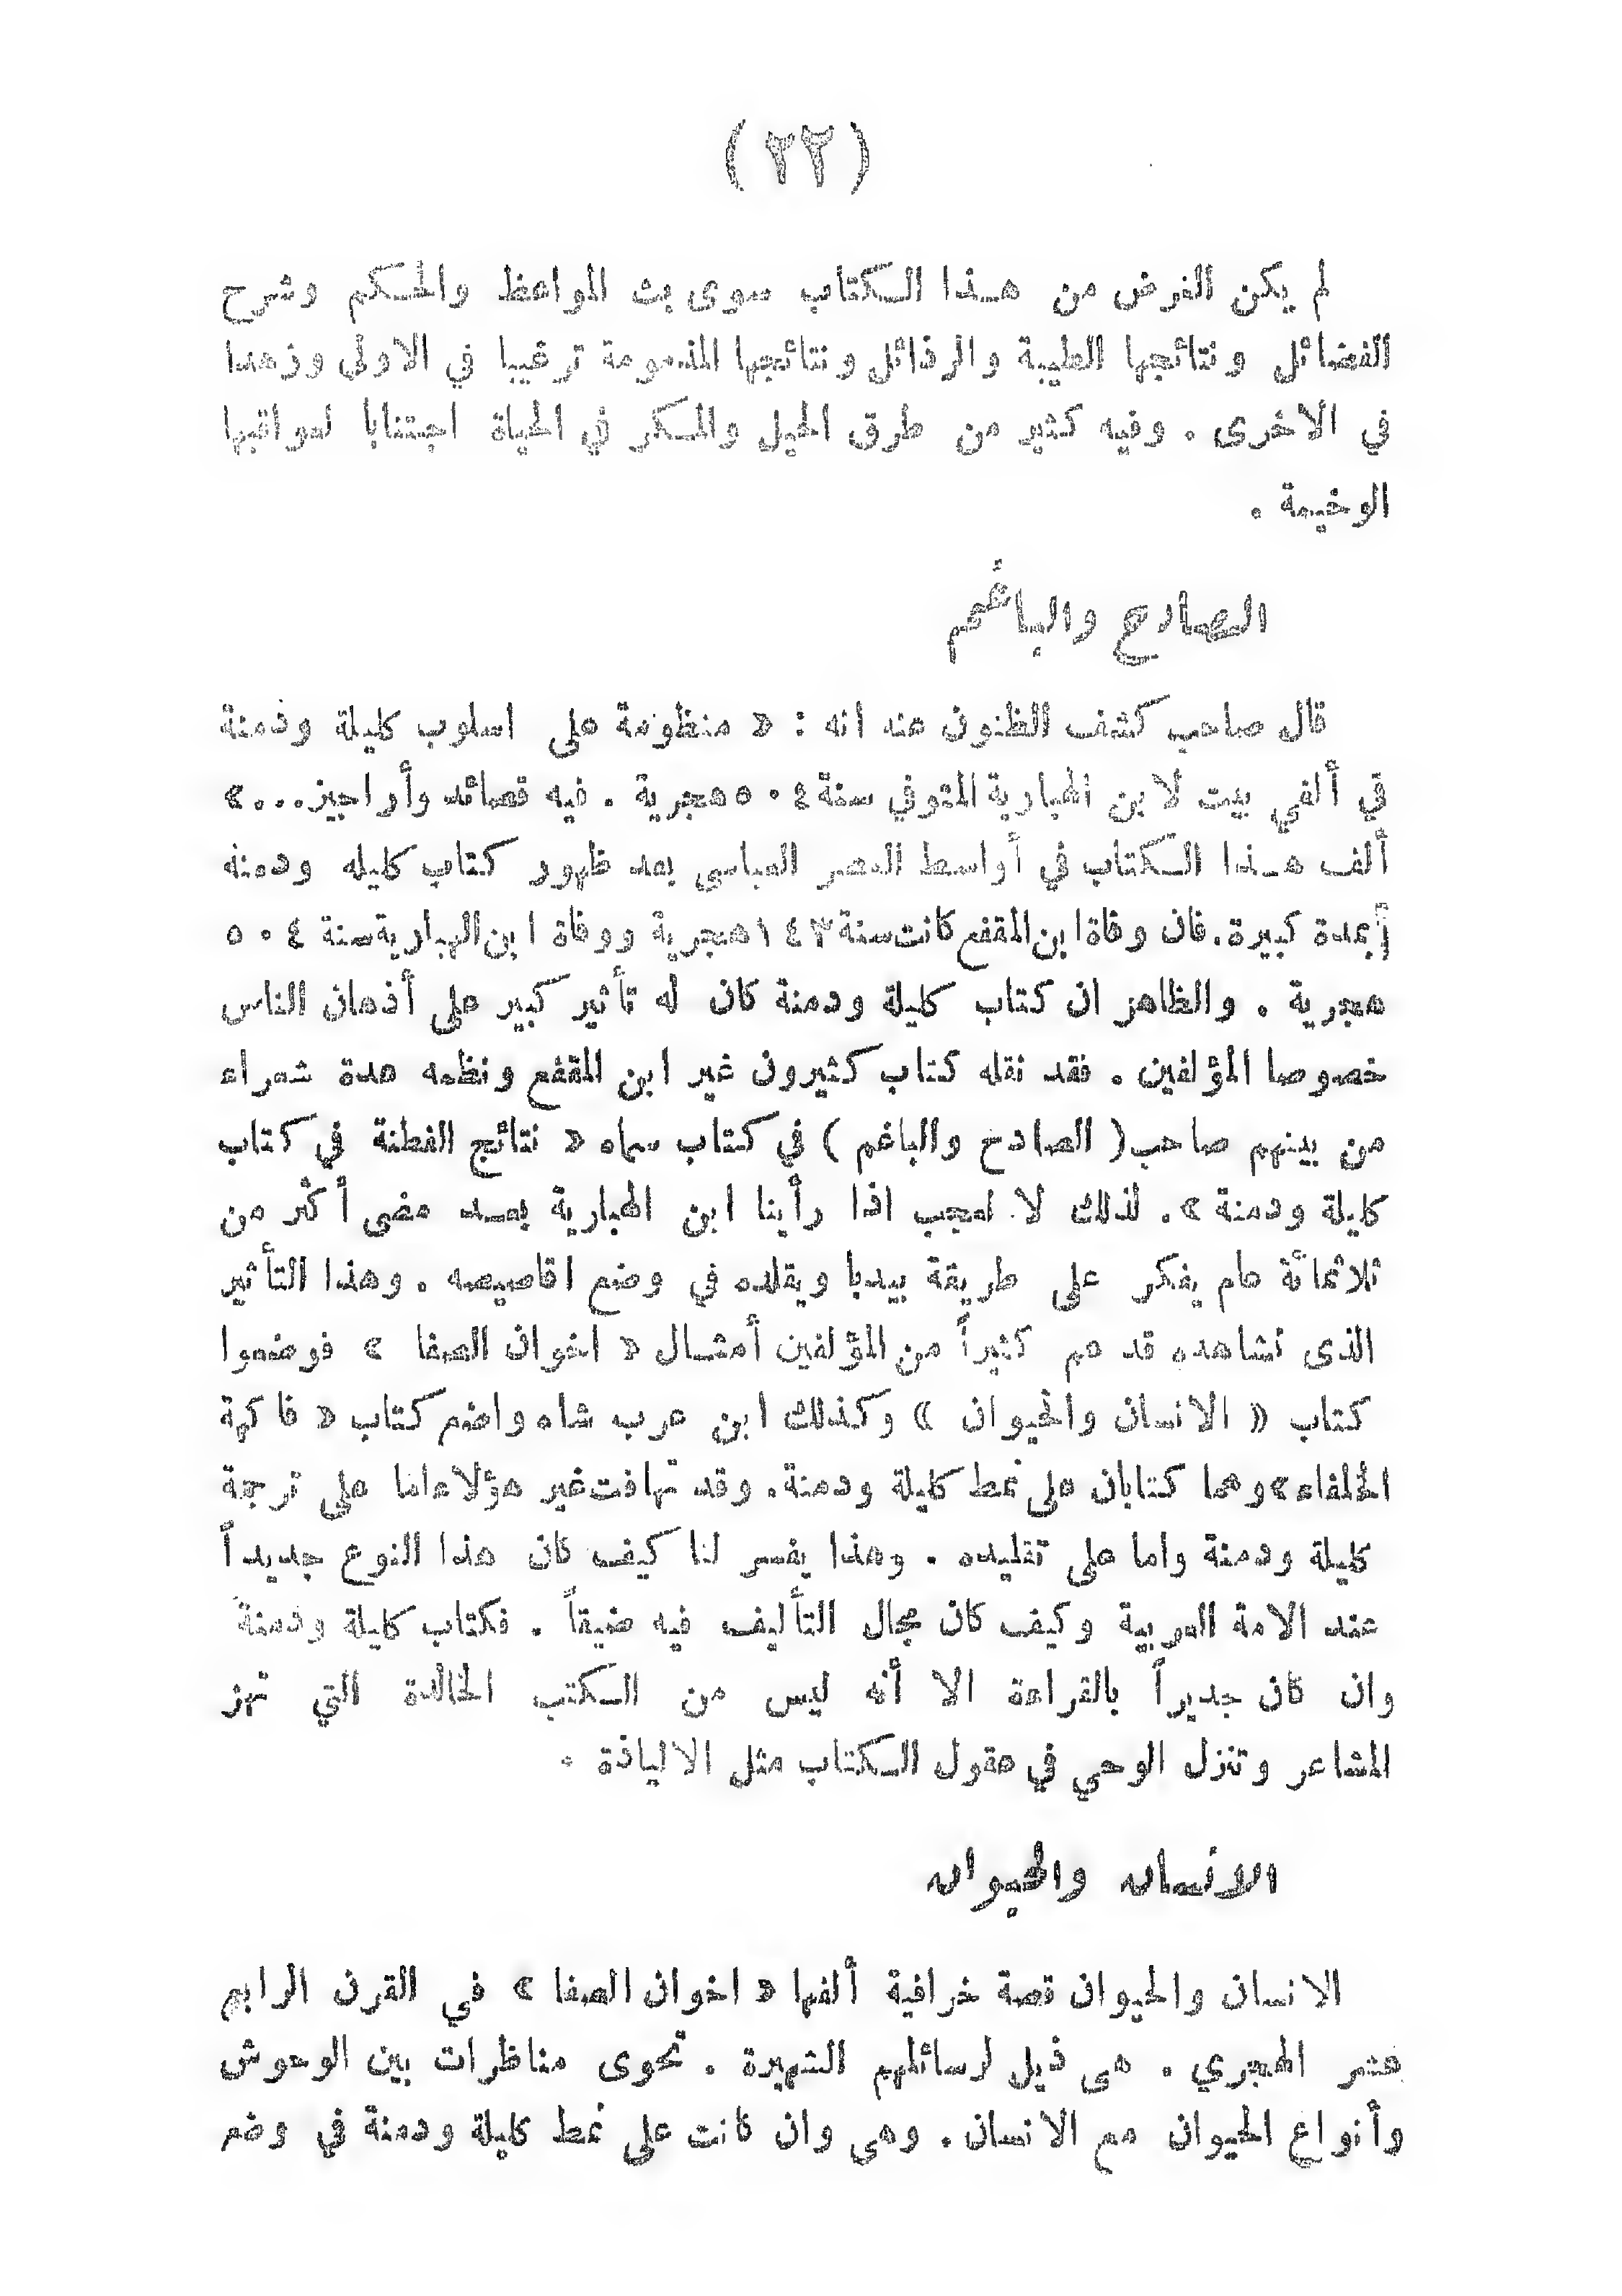 (٢٢)
لم يكن الغرض من هـذا الـكتاب سوى بث المواعظ والحـكم وشرح
الفضائل ونتائجها الطيبة والرذائل ونتائجها المذمومة ترغيبا في الاولى وزهدا
في الاخرى . وفيه كثير من طرق الحيل والمـكر في الحياة اجتنابا لعواقبها
الوخيمة .
الصادح والباغم
قال صاحب كشف الظنون عنه انه : « منظومة على اسلوب كليلة ودمنة
في ألفي بيت لابن الهبارية المتوفي سنة ٥٠٤ هجرية . فيه قصائد وأراجيز... »
ألف هـذا الـكتاب في أواسط العصر العباسى بعد ظهور كتاب كليله ودمنه
بمدة كبيرة. فان وفاة ابن المقفع كانت سنة ١٤٣ هجرية ووفاة ابن الهبارية سنة ٥٠٤
هجرية . والظاهر ان كتاب كليلة ودمنة كان له تأثير كبير على أذهان الناس
خصوصا المؤلفين . فقد نقله كتاب كثيرون غير ابن المقفع ونظمه عدة شعراء
من بينهم صاحب ( الصادح والباغم ) في كتاب سماه « نتائج الفطنة في كتاب
كليلة ودمنة ». لذلك لا نعجب اذا رأينا ابن الهبارية بعـد مضى أكثر من
ثلاثمائة عام يفكر على طريقة بيدبا ويقلده في وضع اقاصيصه . وهذا التأثير
الذى نشاهده قد عم كثيراً من المؤلفين أمثـال « اخوان الصفا » فوضعوا
كتاب « الانسان والحيوان » وكذلك ابن عرب شاه واضع كتاب « فاكهة
الخلفاء » وهما كتابان على نمط كليلة ودمنة. وقد تهافت غير هؤلاء اما على ترجمة
كليلة ودمنة واما على تقليده . وهذا يفسر لنا كيف كان هذا النوع جديداً
عند الامة العربية وكيف كان مجال التأليف فيه ضيقاً . فكتاب كليلة ودمنة
وان كان جديراً بالقراءة الا أنه ليس من الـكتب الخالدة التي تهز
المشاعر وتنزل الوحي في عقول الـكتاب مثل الالياذة .
الانسان والحيوان
الانسان والحيوان قصة خرافية ألفها « اخوان الصفا » في القرن الرابع
عشر الهجري . هى ذيل لرسائلهم الشهيرة . تحوى مناظرات بين الوحوش
وأنواع الحيوان مع الانسان . وهى وان كانت على نمط كليلة ودمنة في وضع